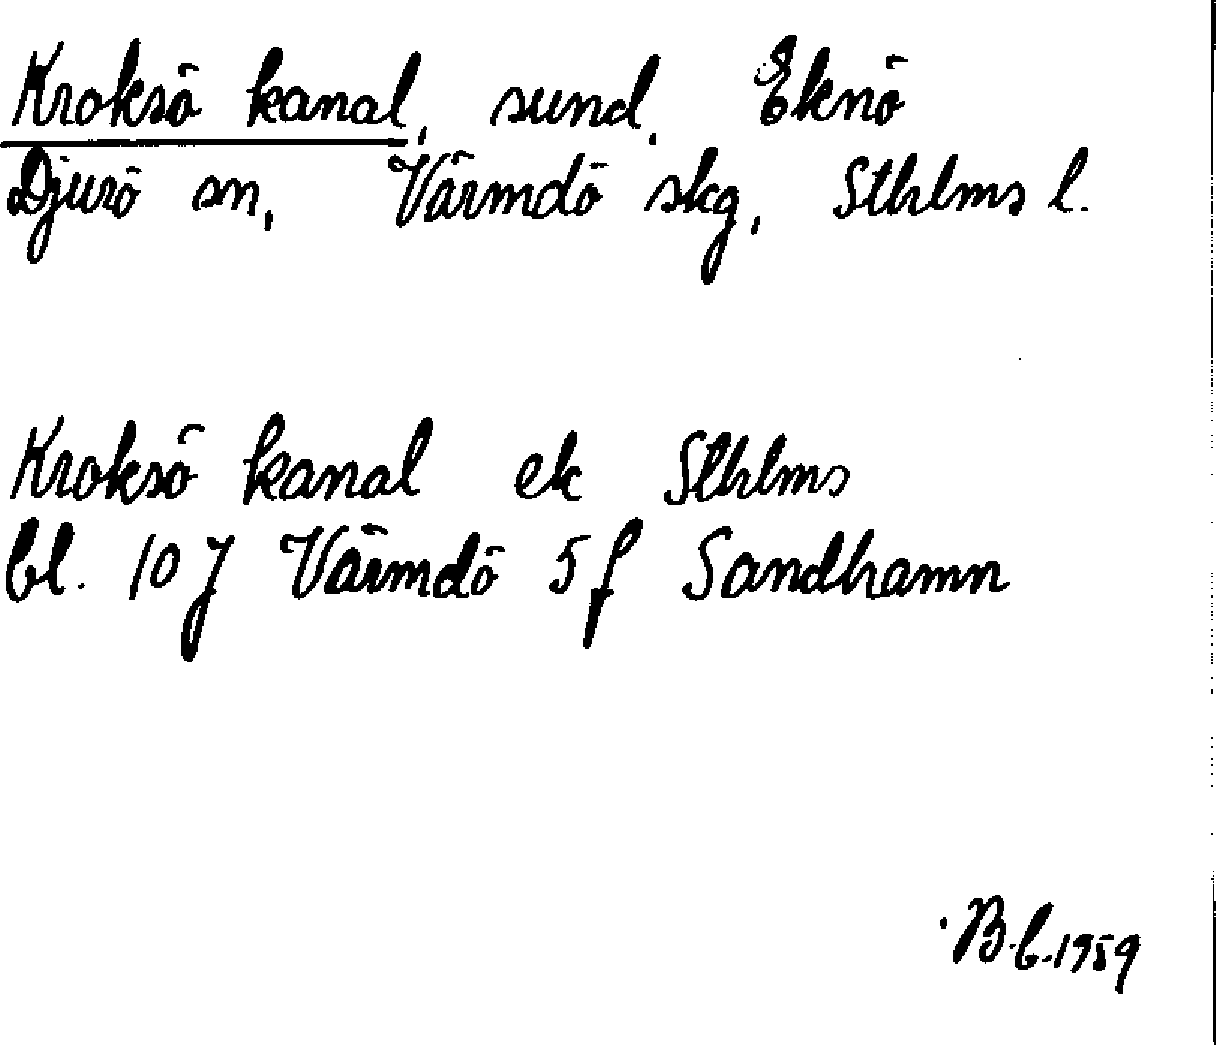 Kroksö kanal, sund. Eknö
Djurö sn, Värmdö skg, Sthlms l.
Kroksö kanal ek Sthlms
bl. 10 J Värmdö 5 f Sandhamn
B.b.1959